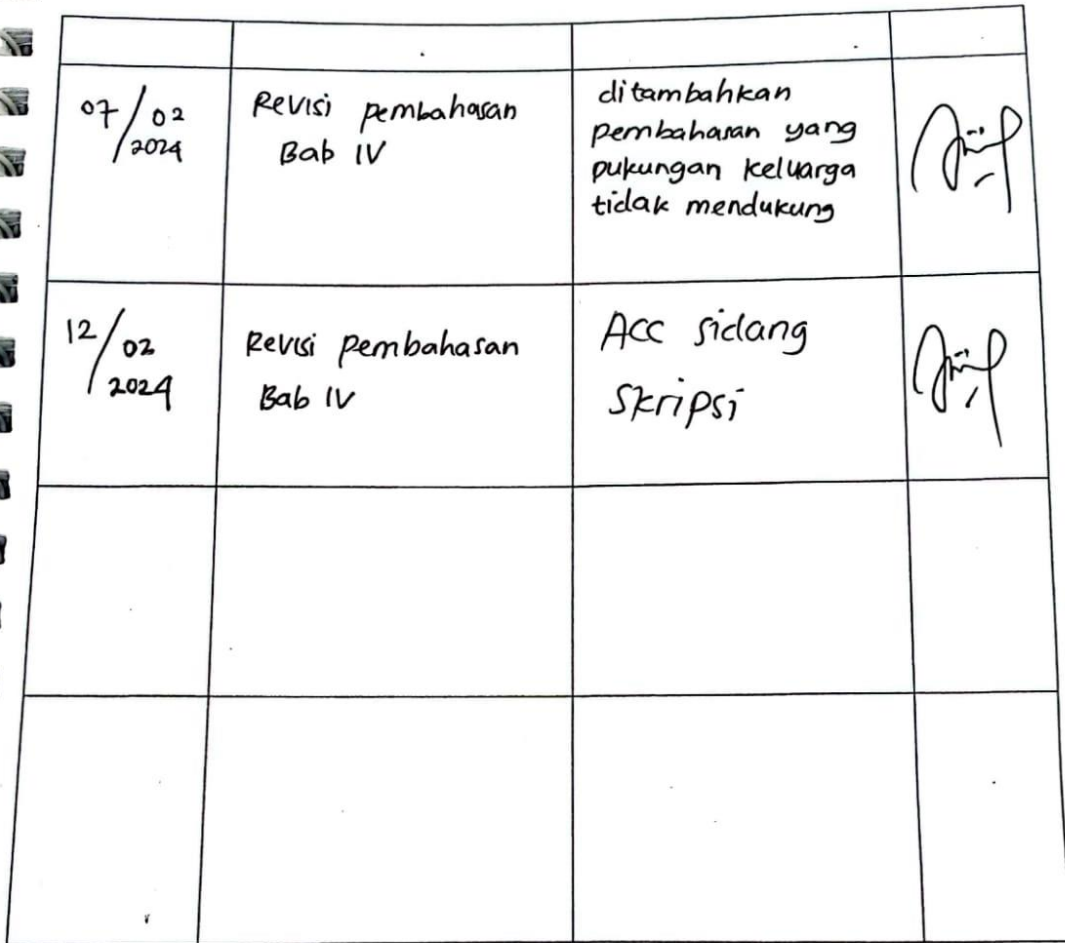 07/02
2024
Revisi pembahasan
Bab IV
ditambahkan
pembahasan yang
pukungan keluarga
tidak mendukung
12/02
2024
Revisi pembahasan
Bab IV
Acc sidang
Skripsi